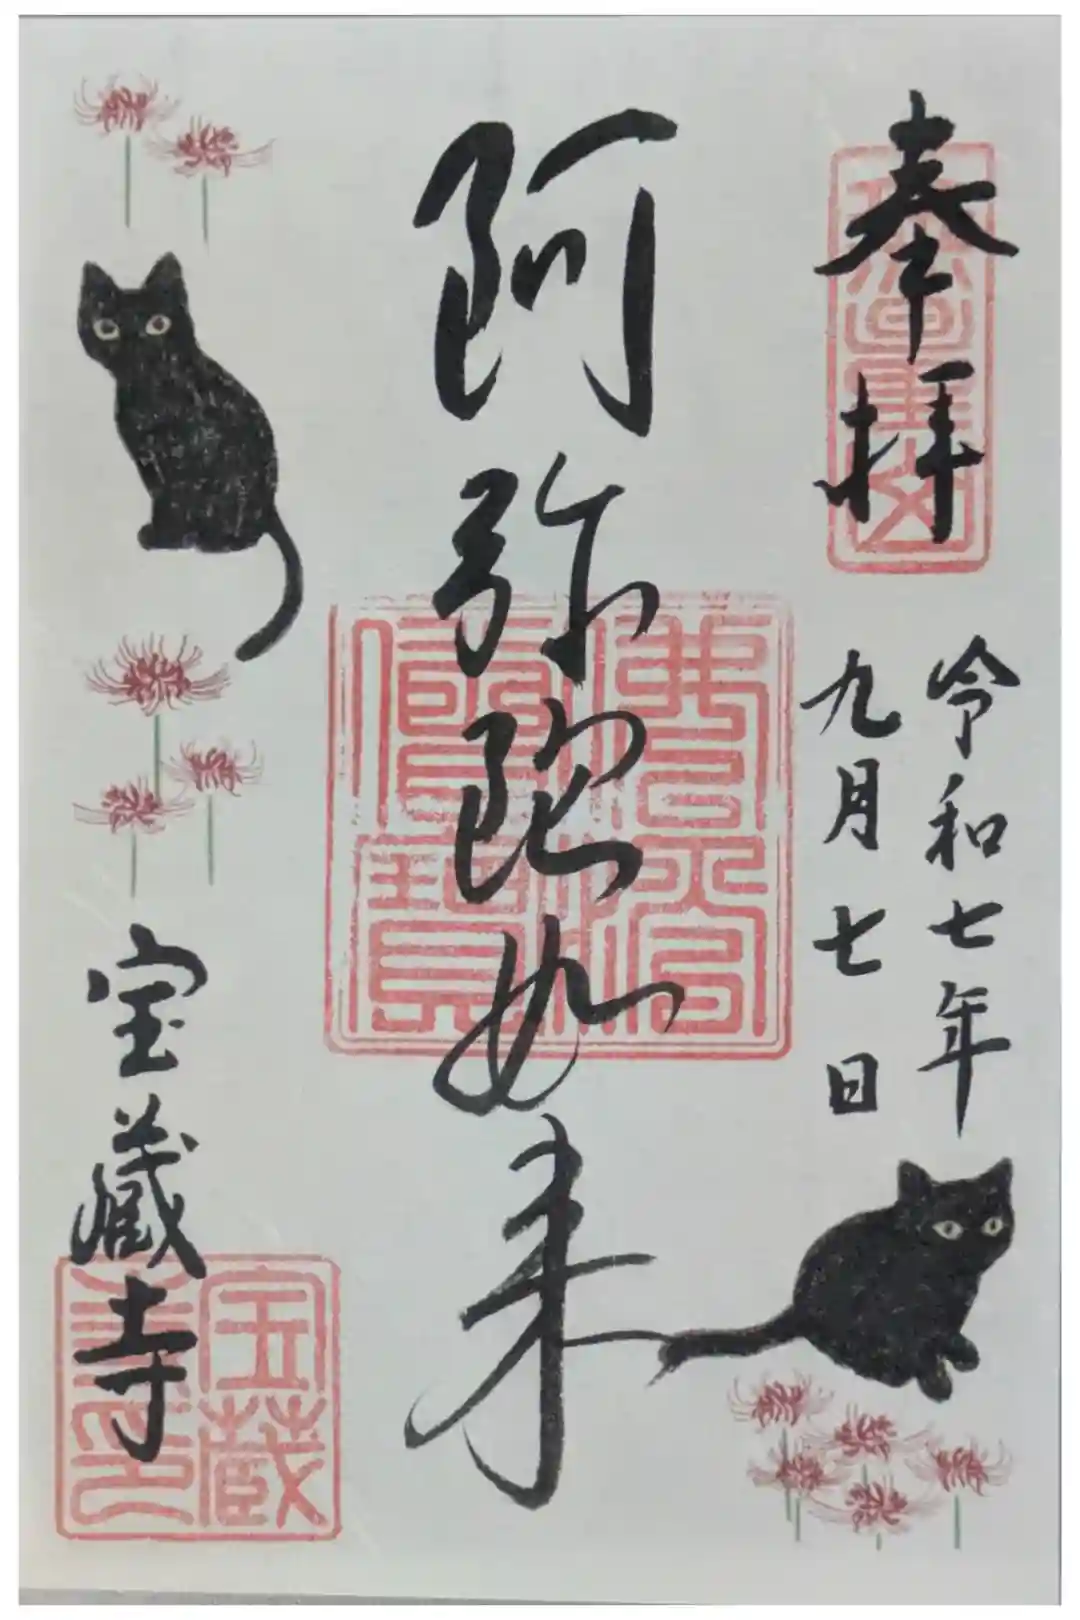 奉拝
令和七年
九月七日
阿弥陀如来
佛法僧寶
宝蔵寺
宝蔵寺印